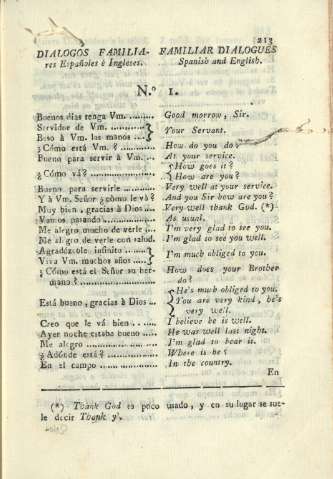 213
DIALOGOS FAMILIA- FAMILIAR DIALOGUES
res Españoles è Ingleses. Spanish and English.
N.º 1.
Buenos dias tenga Vm. Good morrow, Sir.
Servidor de Vm.
Beso à Vm. las manos Your Servant.
¿Cómo está Vm.? How do you do?
Bueno para servir à Vm. At your service.
¿Cómo vá? How goes it?
How are you?
Bueno para servirle Very well at your service.
Y à Vm. Señor ¿cómo le vá? And you Sir how are you?
Muy bien, gracias à Dios Very well thank God. (*)
Vamos pasando As usual.
Me alegro mucho de verle I'm very glad to see you.
Me alegro de verle con salud. I'm glad to see you well.
Agradezcolo infinito
Viva Vm. muchos años I'm much obliged to you.
¿Cómo está el Señor su her- How does your Brother
mano? do?
He's much obliged to you.
Está bueno, gracias à Dios You are very kind, he's
very well.
Creo que le vá bien I believe he is well.
Ayer noche estaba bueno He was well last night.
Me alegro I'm glad to hear it.
¿Adónde está? Where is he?
En el campo In the country.
En
(*) Thank God es poco usado, y en su lugar se sue-
le decir Thank y'.